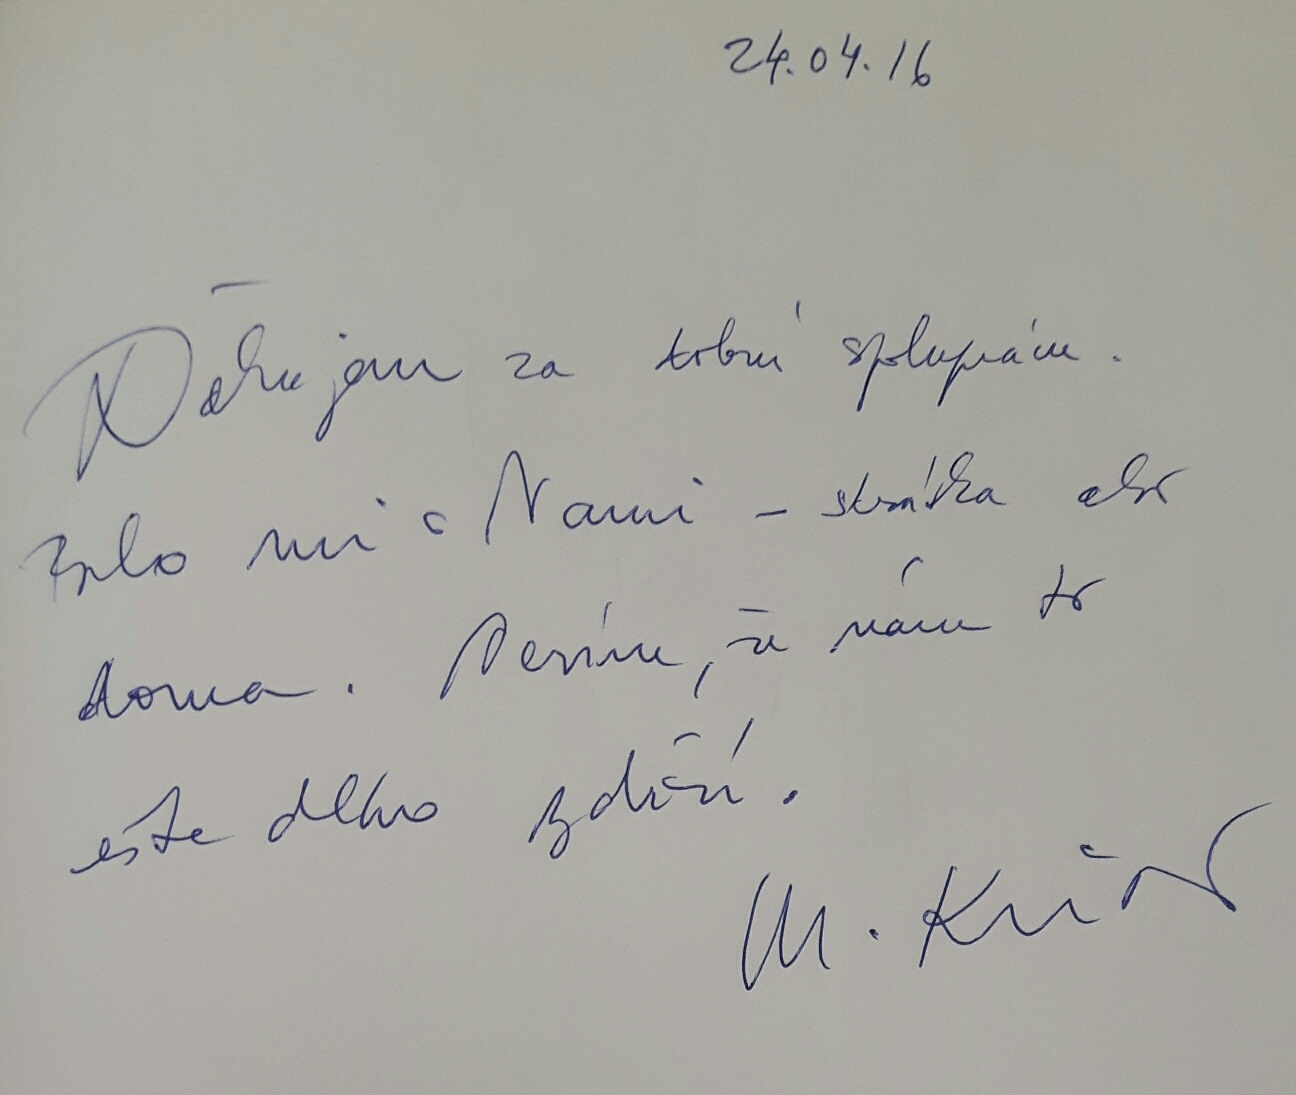 24.04.16
Ďakujem za dobrú spoluprácu.
Bolo mi s Vami – skrátka ako
doma. Verím, že nám to
ešte dlho vydrží.
M.